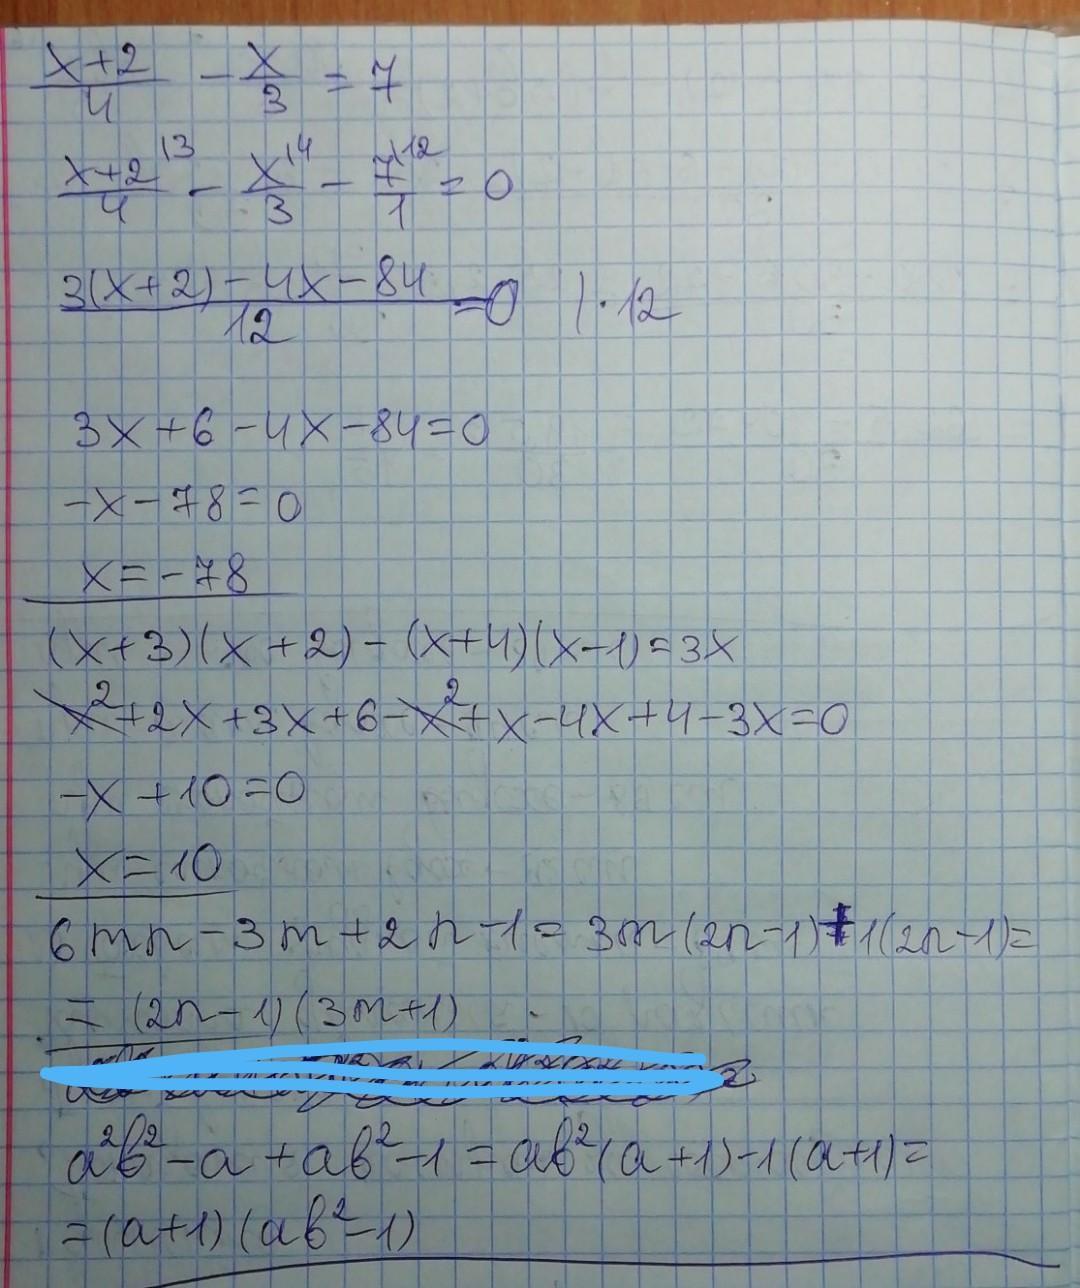 (x+2)/4 - x/3 = 7
(x+2)/4 \3 - x/3 \4 - 7/1 \12 = 0
(3(x+2)-4x-84)/12 = 0 | · 12
3x+6-4x-84=0
-x-78=0
x=-78
(x+3)(x+2)-(x+4)(x-1)=3x
x²+2x+3x+6-x²+x-4x+4-3x=0
-x+10=0
x=10
6mn-3m+2n-1=3m(2n-1)+1(2n-1)=
=(2n-1)(3m+1)
a²b²-a+ab²-1=ab²(a+1)-1(a+1)=
=(a+1)(ab²-1)